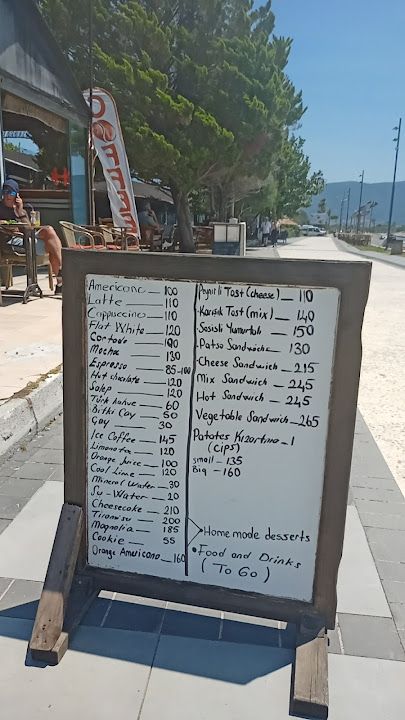 Americano — 100
Latte — 110
Cappuccino — 110
Flat White — 120
Cortado — 190
Mocha — 130
Espresso — 85-100
Hot chocolate — 120
Salep — 120
Türk kahve — 60
Bitki Çay — 50
Çay 30
Ice Coffee — 145
Limonata — 120
Orange Juice — 100
Cool Lime — 120
Mineral Water — 30
Su-Water — 20
Cheesecake — 210
Tiramisu — 200
Magnolia — 185
Cookie — 55
Orange Americano — 160
Peynirli Tost (cheese) — 110
Karışık Tost (mix) — 140
Sosisli Yumurtalı — 150
Patso Sandwich — 130
Cheese Sandwich — 215
Mix Sandwich — 245
Hot Sandwich — 245
Vegetable Sandwich — 265
Patates Kızartma — 1
(cips)
small — 135
Big — 160
Home made desserts
• Food and Drinks
(To Go)